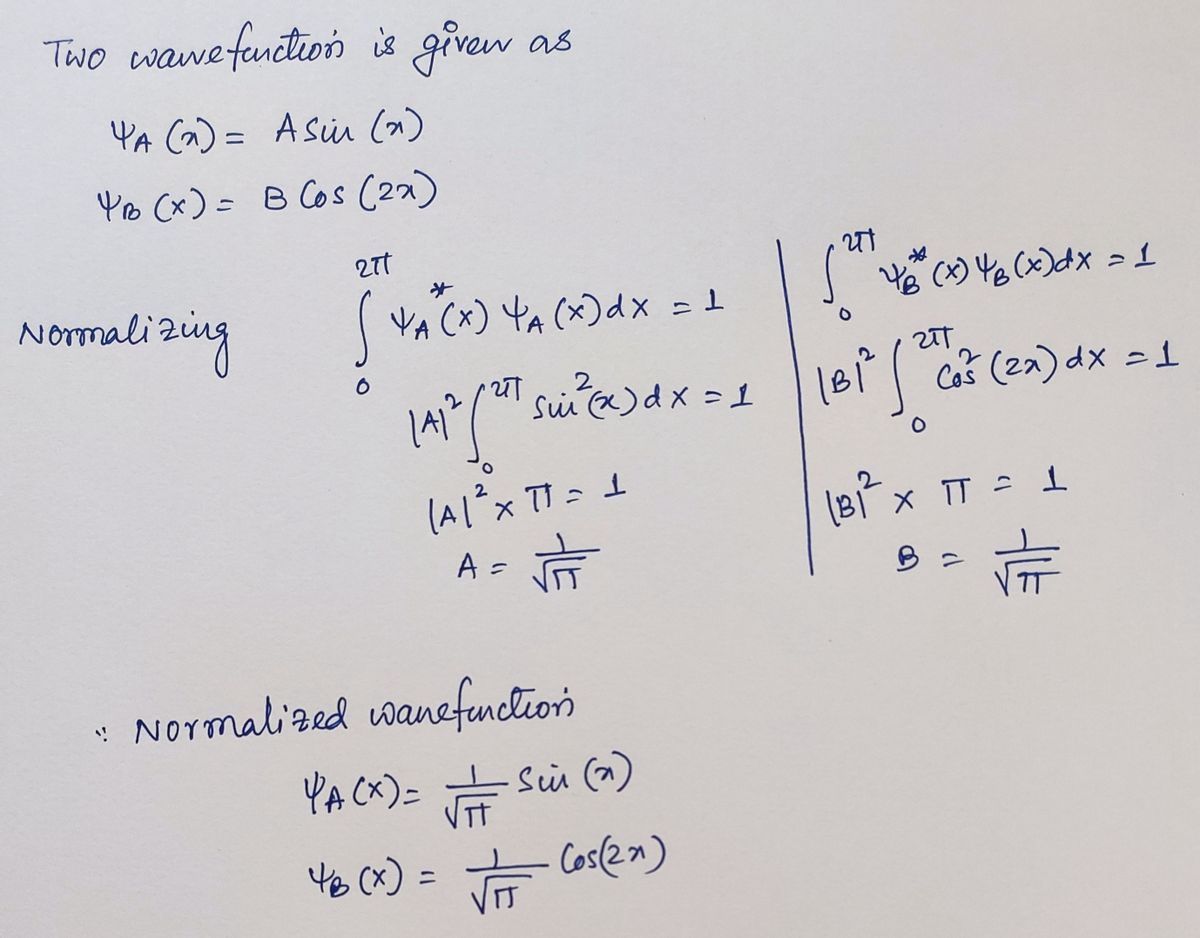 Two wavefunction is given as
ψA (x) = A Sin (x)
ψB (x) = B Cos (2x)
Normalizing
∫₀^2π ψA*(x) ψA (x) dx = 1
|A|² ∫₀^2π Sin²(x) dx = 1
|A|² x π = 1
A = 1/√π
∫₀^2π ψB*(x) ψB (x) dx = 1
|B|² ∫₀^2π Cos² (2x) dx = 1
|B|² x π = 1
B = 1/√π
∵ Normalized wavefunction
ψA (x) = 1/√π Sin (x)
ψB (x) = 1/√π Cos(2x)